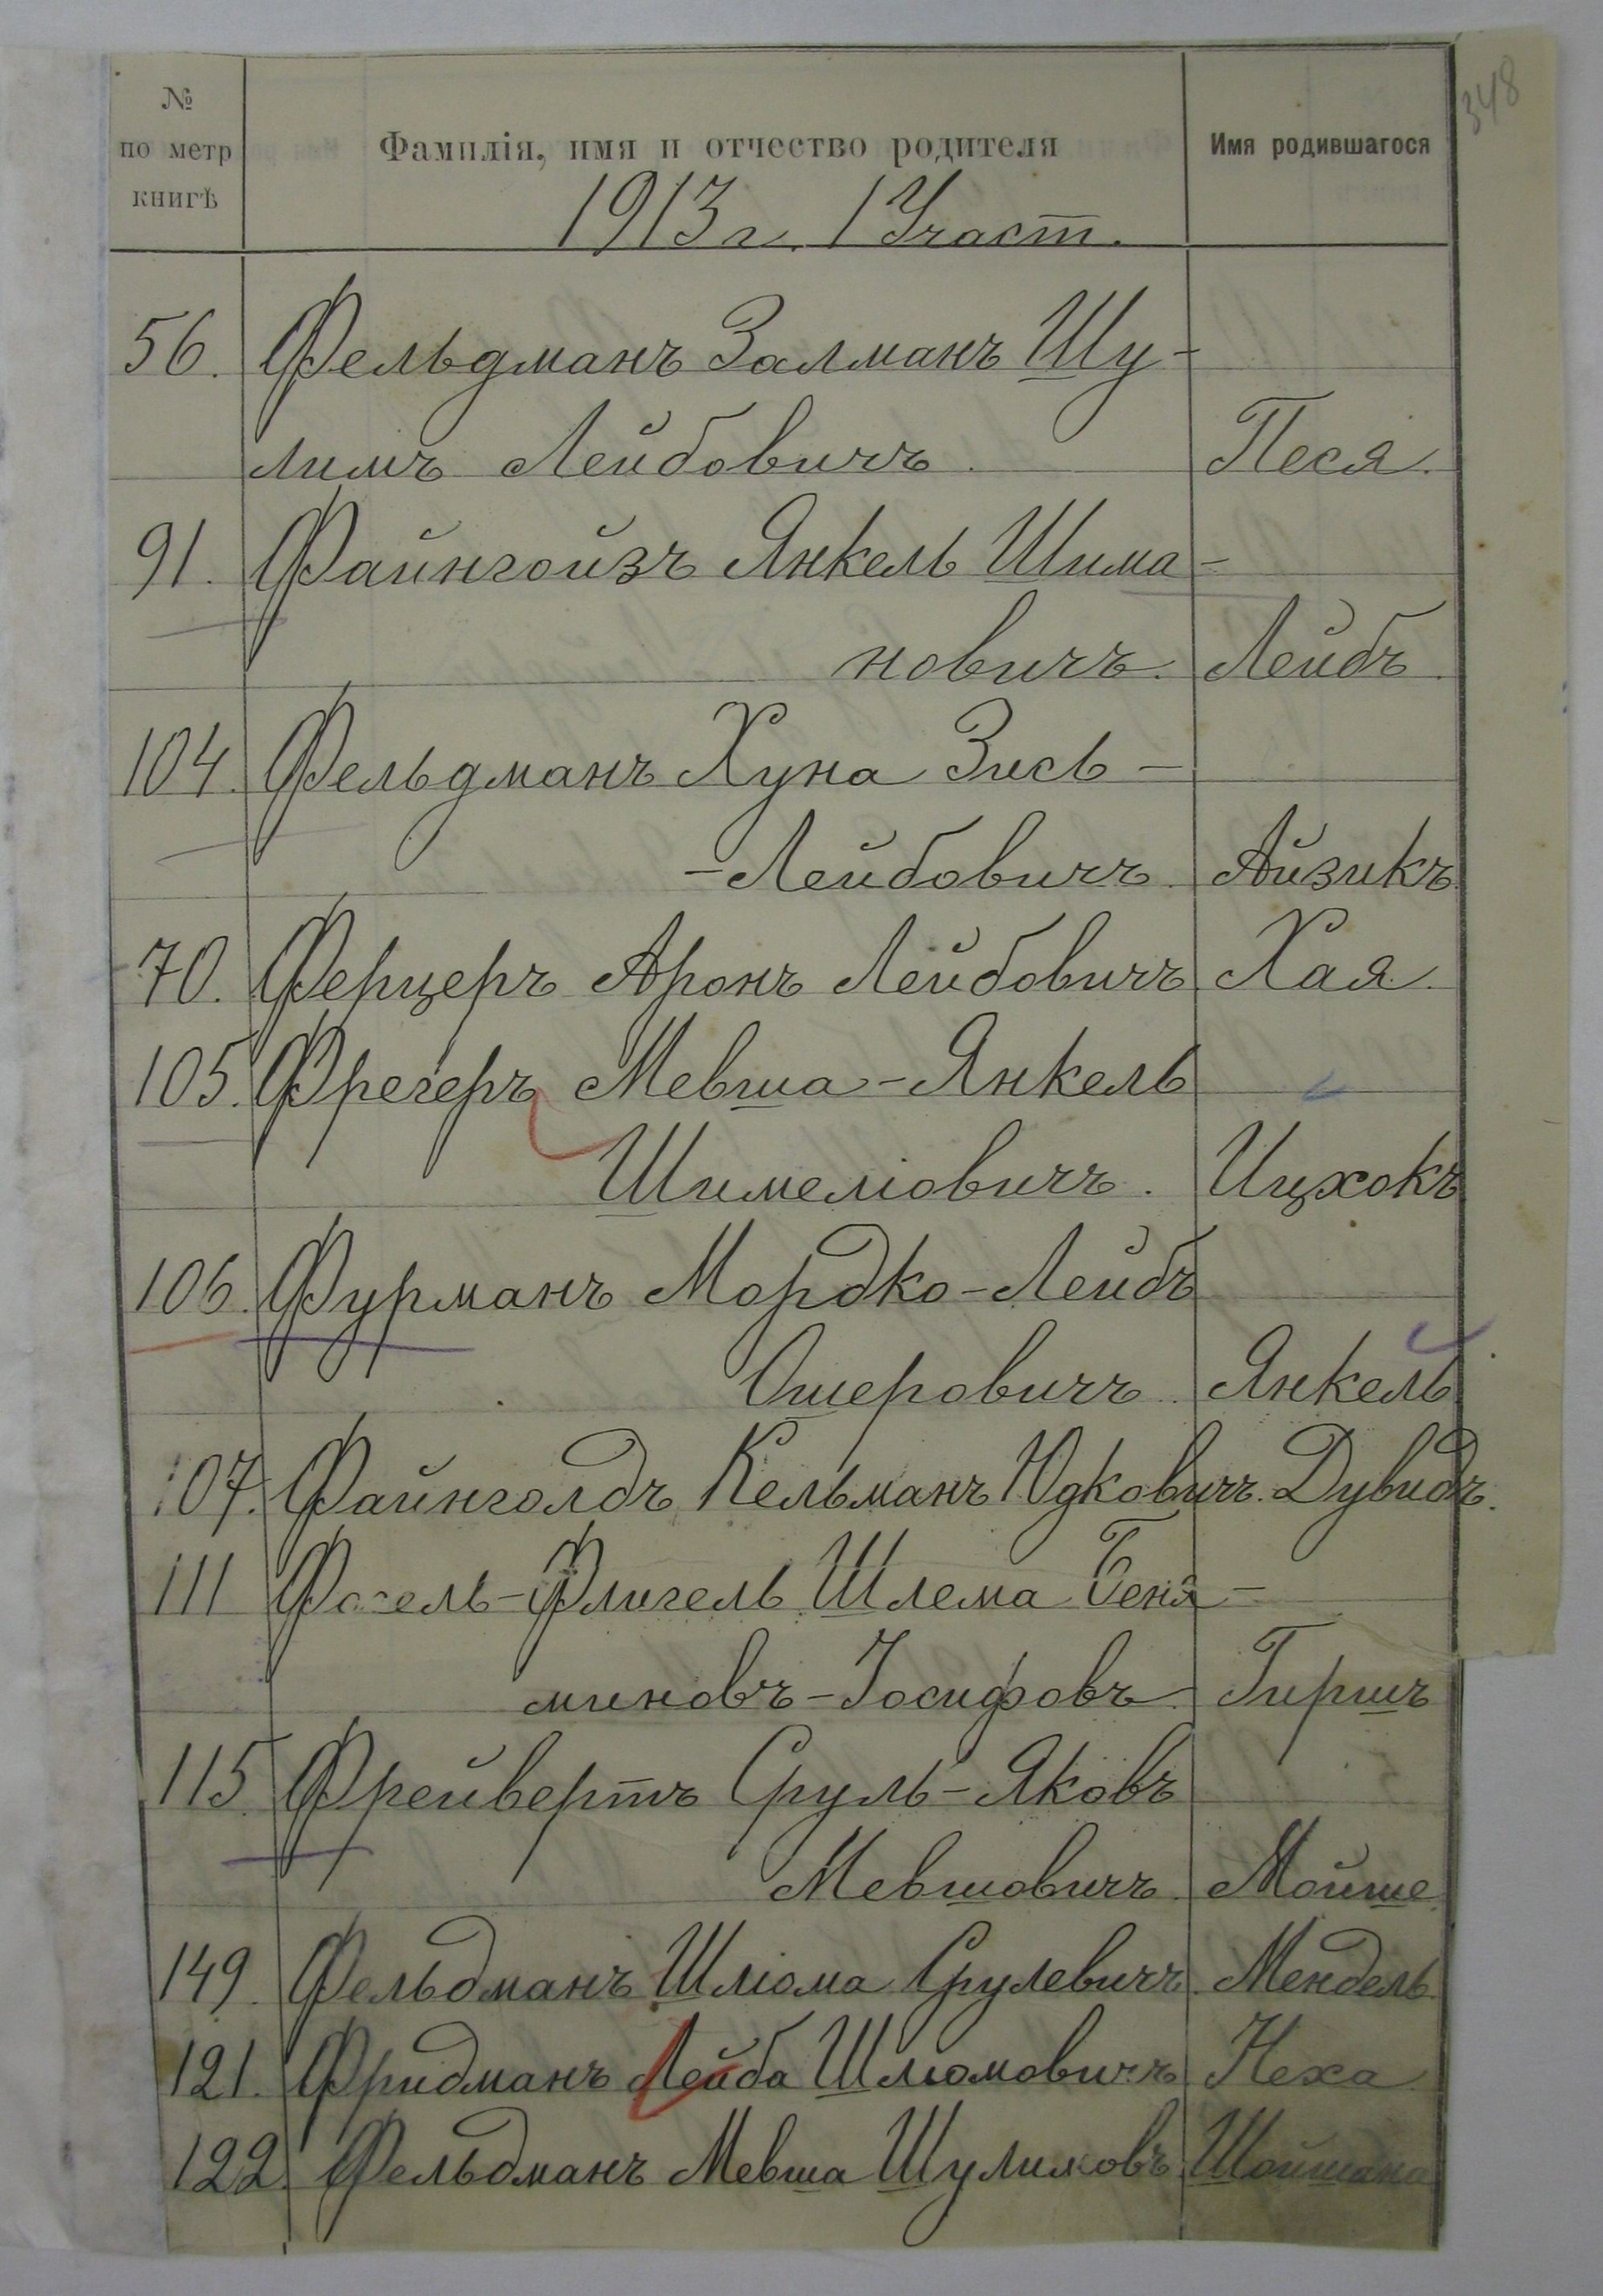 348
№ по метр книгѣ
Фамилія, имя и отчество родителя
Имя родившагося
1913 г. 1 Участ.
56. Фельдманъ Залманъ Шу-
лимъ Лейбовичъ. Песя.
91. Файнгойзъ Янкель Шима-
новичъ. Лейбъ.
104. Фельдманъ Хуна Зись-
-Лейбовичъ. Айзикъ.
70. Ферцеръ Аронъ Лейбовичъ Хая.
105. Фрегеръ Мевша-Янкель
Шимеліовичъ. Ицхокъ
106. Фурманъ Мордко-Лейбъ
Ошеровичъ. Янкель
107. Файнголдъ Кельманъ Юдковичъ. Дувидъ.
111 Фогель-Флигель Шлема Беня-
миновъ-Іосифовъ. Гиршъ
115. Фрейвертъ Сруль-Яковъ
Мевшовичъ. Мойше
149. Фельдманъ Шліома Срулевичъ. Мендель.
121. Фридманъ Лейба Шлюмовичъ Неха
122. Фельдманъ Мевша Шулимовъ